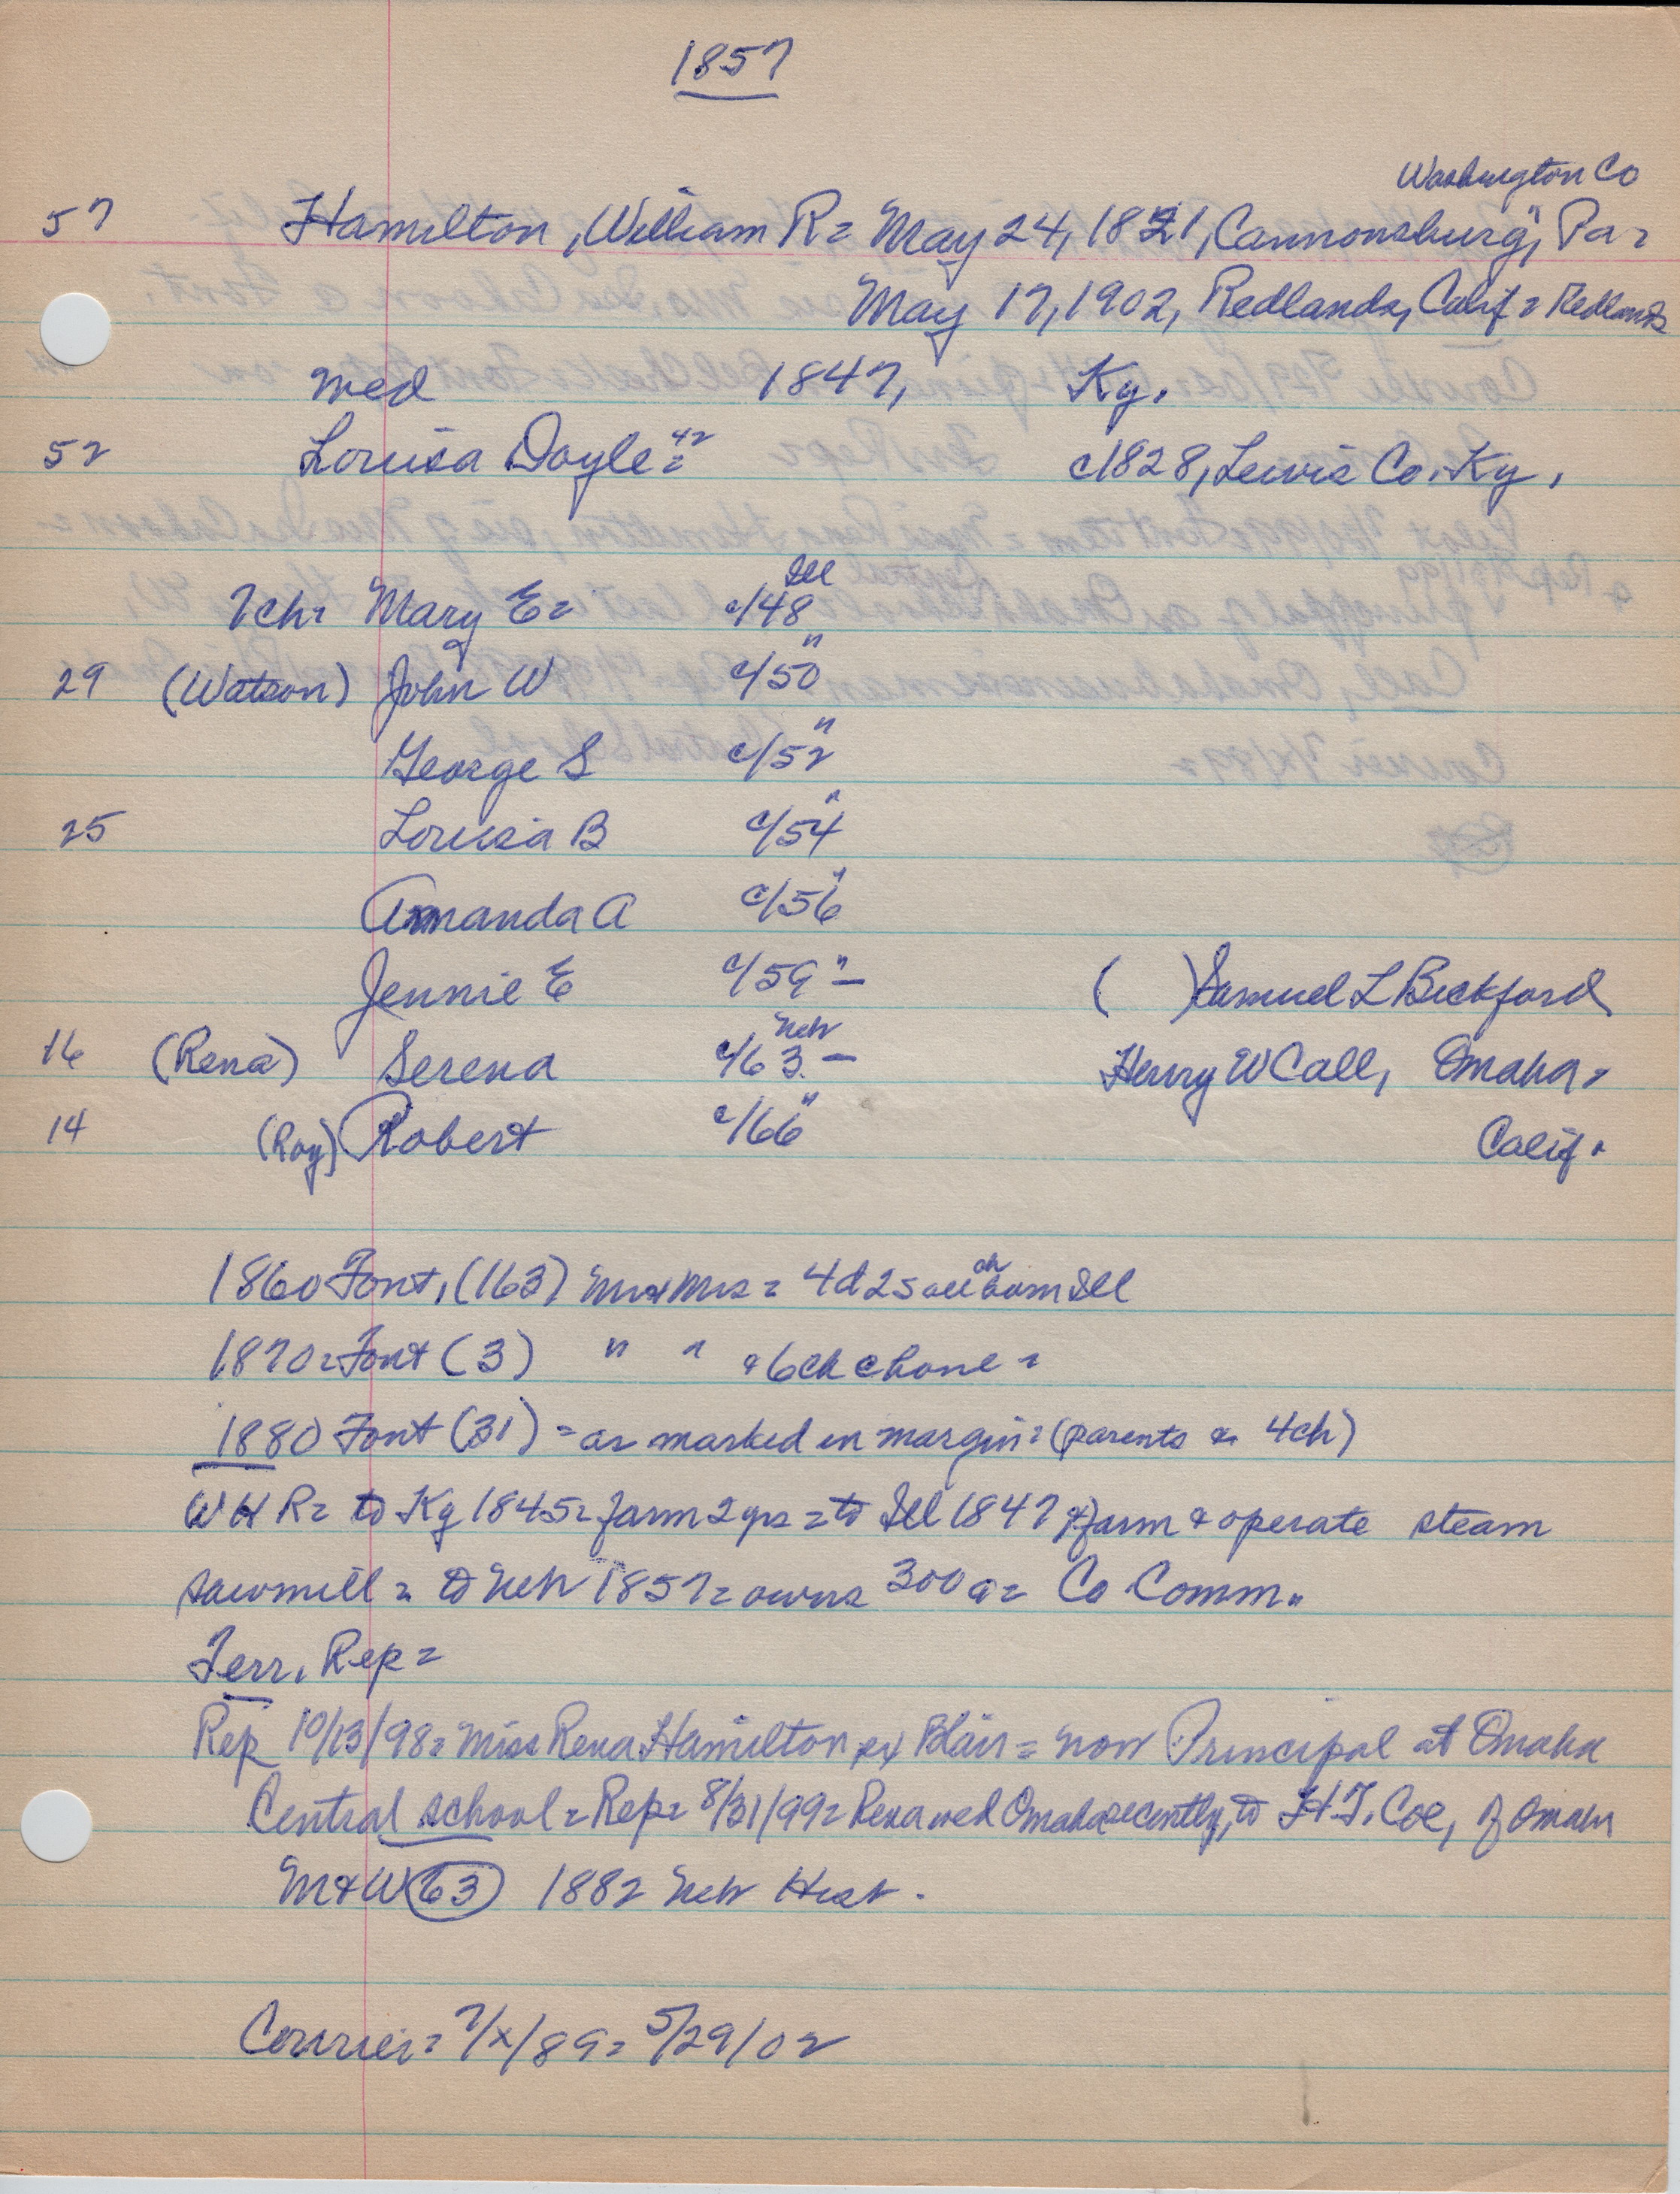 1857
Washington Co
57 Hamilton, William R= May 24, 1821, Cannonsburg", Pa=
May 17, 1902, Redlands, Calif = Redlands
wed 1847, Ky.
52 Louisa Doyle = c1828, Lewis Co. Ky.
Ill
7ch= Mary E= c/48
29 (Watson) John W c/50 "
George S c/52 "
25 Louisa B c/54 "
Amanda A c/56 "
Jennie E c/59 " — ( ) Samuel L Beckford
Neb
16 (Rena) Serena c/63 — Henry W Call, Omaha =
14 (Roy) Robert c/66 " Calif.
1860 Font, (163) Mr & Mrs = 4d 2s all ch born Ill
1870 = Font (3) " " & 6ch @ home =
1880 Font (31) = as marked in margin = (parents & 4ch)
W H R = to Ky 1845 = farm 2 yrs = to Ill 1847 & farm & operate steam
sawmill = to Neb 1857 = owns 300 a = Co Comm.
Terr. Rep =
Rep 10/13/98 = Miss Rena Hamilton ex Blair = now Principal at Omaha
Central school = Rep = 8/31/99 = Rena wed Omaha recently, to H.T. Coe, of Omaha
M & W (63) 1882 Neb Hist.
Courier = 7/x/89 = 5/29/02